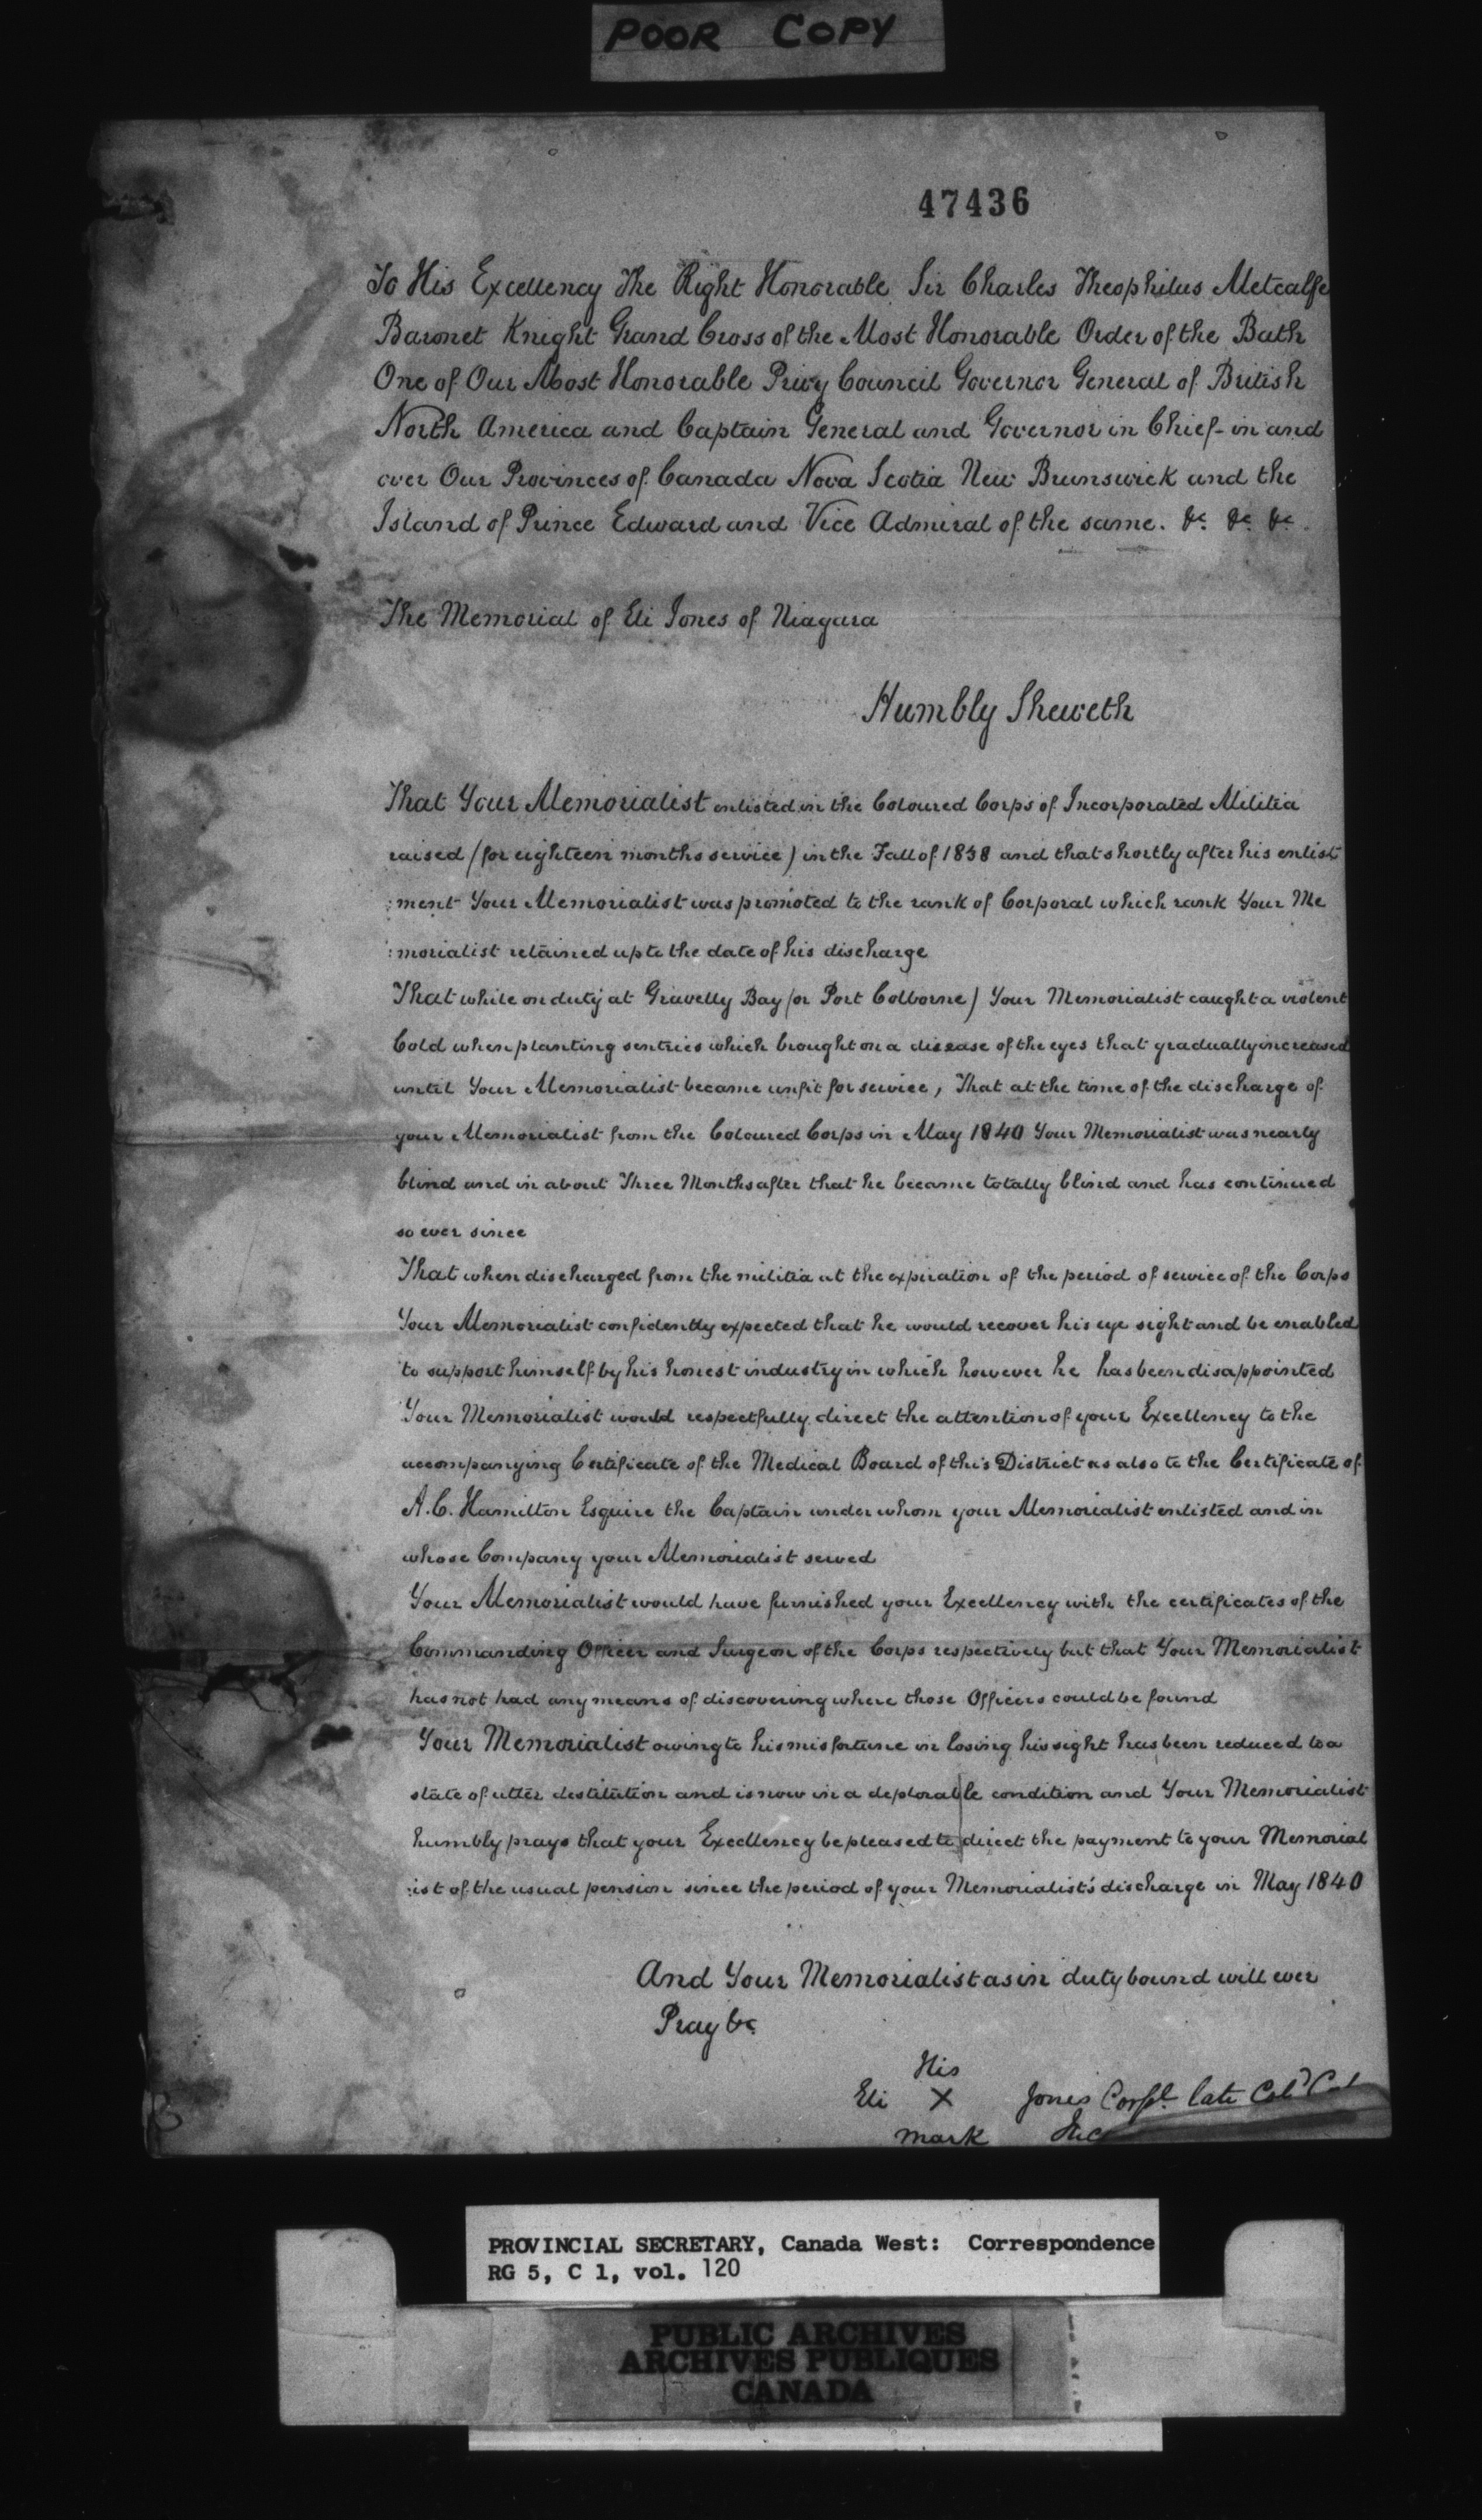 POOR COPY
47436
To His Excellency The Right Honorable Sir Charles Theophilus Metcalfe
Baronet Knight Grand Cross of the Most Honorable Order of the Bath
One of Our Most Honorable Privy Council Governor General of British
North America and Captain General and Governor in Chief in and
over Our Provinces of Canada Nova Scotia New Brunswick and the
Island of Prince Edward and Vice Admiral of the same. &c &c &c
The Memorial of Eli Jones of Niagara
Humbly Sheweth
That Your Memorialist enlisted in the Coloured Corps of Incorporated Militia
raised (for eighteen months service) in the Fall of 1838 and that shortly after his enlist
:ment Your Memorialist was promoted to the rank of Corporal which rank Your Me
:morialist retained up to the date of his discharge
That while on duty at Gravelly Bay (or Port Colborne) Your Memorialist caught a violent
Cold when planting sentries which brought on a disease of the eyes that gradually increased
until Your Memorialist became unfit for service, That at the time of the discharge of
your Memorialist from the Coloured Corps in May 1840 Your Memorialist was nearly
blind and in about Three Months after that he became totally blind and has continued
so ever since
That when discharged from the militia at the expiration of the period of service of the Corps
Your Memorialist confidently expected that he would recover his eye sight and be enabled
to support himself by his honest industry in which however he has been disappointed
Your Memorialist would respectfully direct the attention of your Excellency to the
accompanying Certificate of the Medical Board of this District as also to the Certificate of
A.C. Hamilton Esquire the Captain under whom your Memorialist enlisted and in
whose Company your Memorialist served
Your Memorialist would have furnished your Excellency with the certificates of the
Commanding Officer and Surgeon of the Corps respectively but that Your Memorialist
has not had any means of discovering where those Officers could be found
Your Memorialist owing to his misfortune in losing his sight has been reduced to a
state of utter destitution and is now in a deplorable condition and Your Memorialist
humbly prays that your Excellency be pleased to direct the payment to your Memorial
:ist of the usual pension since the period of your Memorialist's discharge in May 1840
And Your Memorialist as in duty bound will ever
Pray &c
His
Eli X Jones Corpl. late Cold
mark
PROVINCIAL SECRETARY, Canada West: Correspondence
RG 5, C 1, vol. 120
PUBLIC ARCHIVES
ARCHIVES PUBLIQUES
CANADA